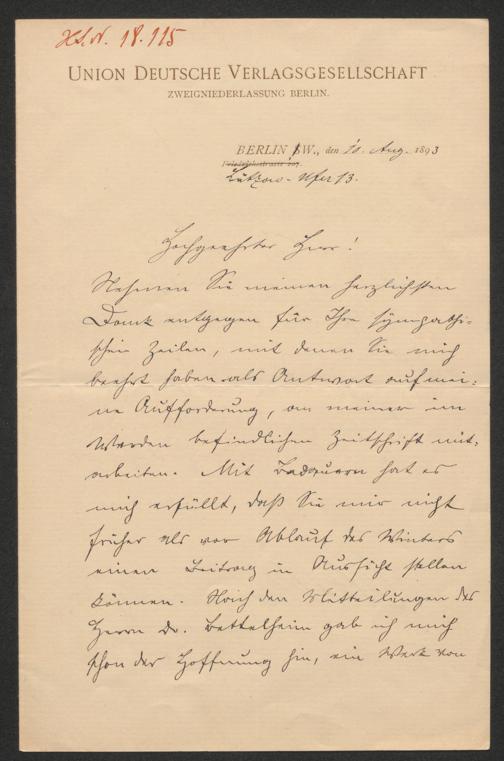 H.I.N. 18.115
UNION DEUTSCHE VERLAGSGESELLSCHAFT
ZWEIGNIEDERLASSUNG BERLIN.
BERLIN W., den 20. Aug. 1893
Friedrichstrasse 207.
Lützow-Ufer 13.
Hochgeehrter Herr!
Nehmen Sie meinen herzlichsten
Dank entgegen für Ihre sympathi-
schen Zeilen, mit denen Sie mich
beehrt haben als Antwort auf mei-
ne Aufforderung, an meiner im
Werden befindlichen Zeitschrift mit-
arbeiten. Mit Bedauern hat es
mich erfüllt, daß Sie mir nicht
früher als vor Ablauf des Winters
einen Beitrag in Aussicht stellen
können. Nach den Mitteilungen des
Herrn Dr. Bettelheim gab ich mich
schon der Hoffnung hin, ein Werk von